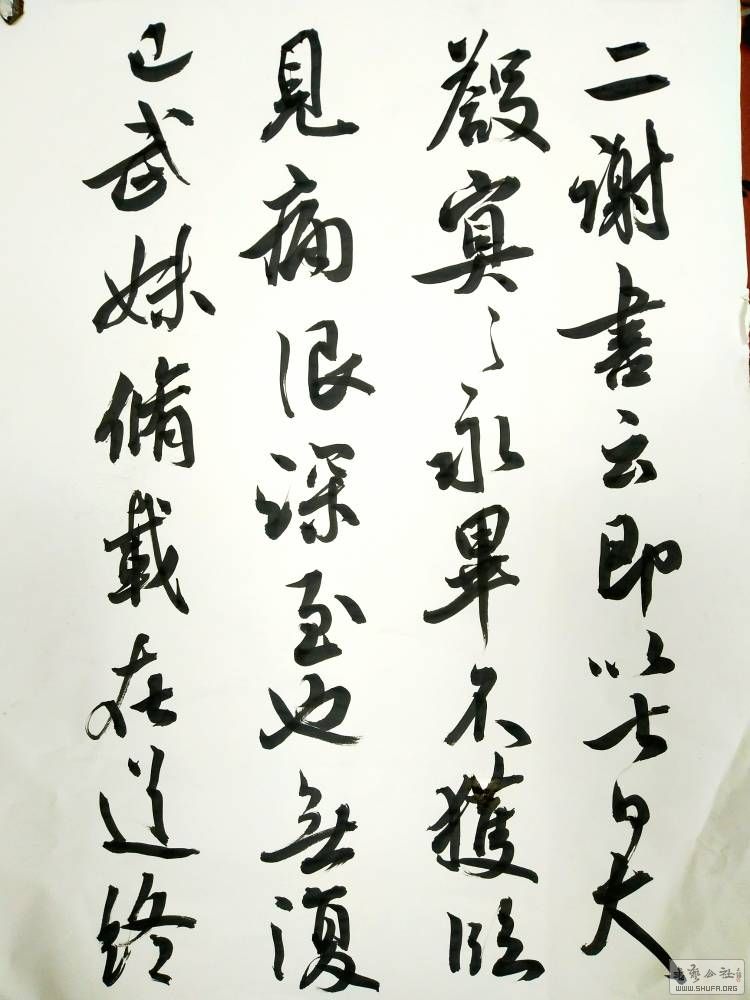 二谢書云即以七日大
殮冥々永畢不獲臨
見痛恨深至也無復
已武妹脩載在道終
書藝公社
WWW.SHUFA.ORG